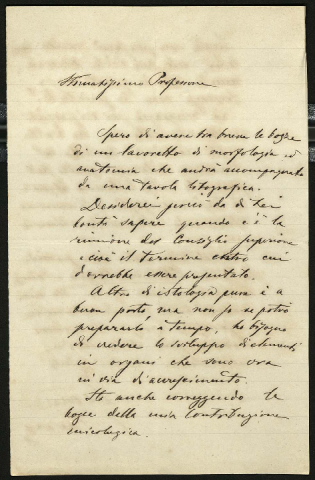 Stimatissimo Professore
Spero di avere tra breve le bozze
di un lavoretto di morfologia ed
anatomia che andrà accompagnato
da una tavola litografica.
Desidererei perciò da di Lei
bontà sapere quando c'è la
riunione del Consiglio Superiore
e cioè il termine entro cui
dovrebbe essere presentato.
Altro di istologia pure è a
buon porto, ma non so se potrò
prepararlo a tempo, ho bisogno
di vedere lo sviluppo di elementi
in organi che sono ora
in via di accrescimento.
Sto anche correggendo le
bozze della mia Contribuzione
micologica.